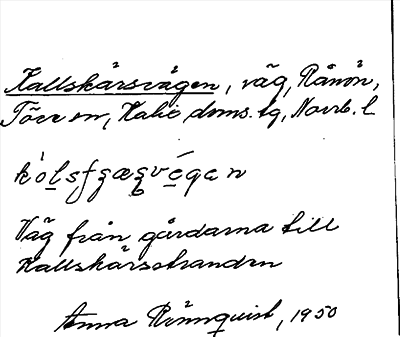 Kallskärsvägen, väg, Rånön,
Töre sn, Kalix doms. tg, Norrb. l.
Väg från gårdarna till
Kallskärsstranden
Anna Rönnquist, 1950